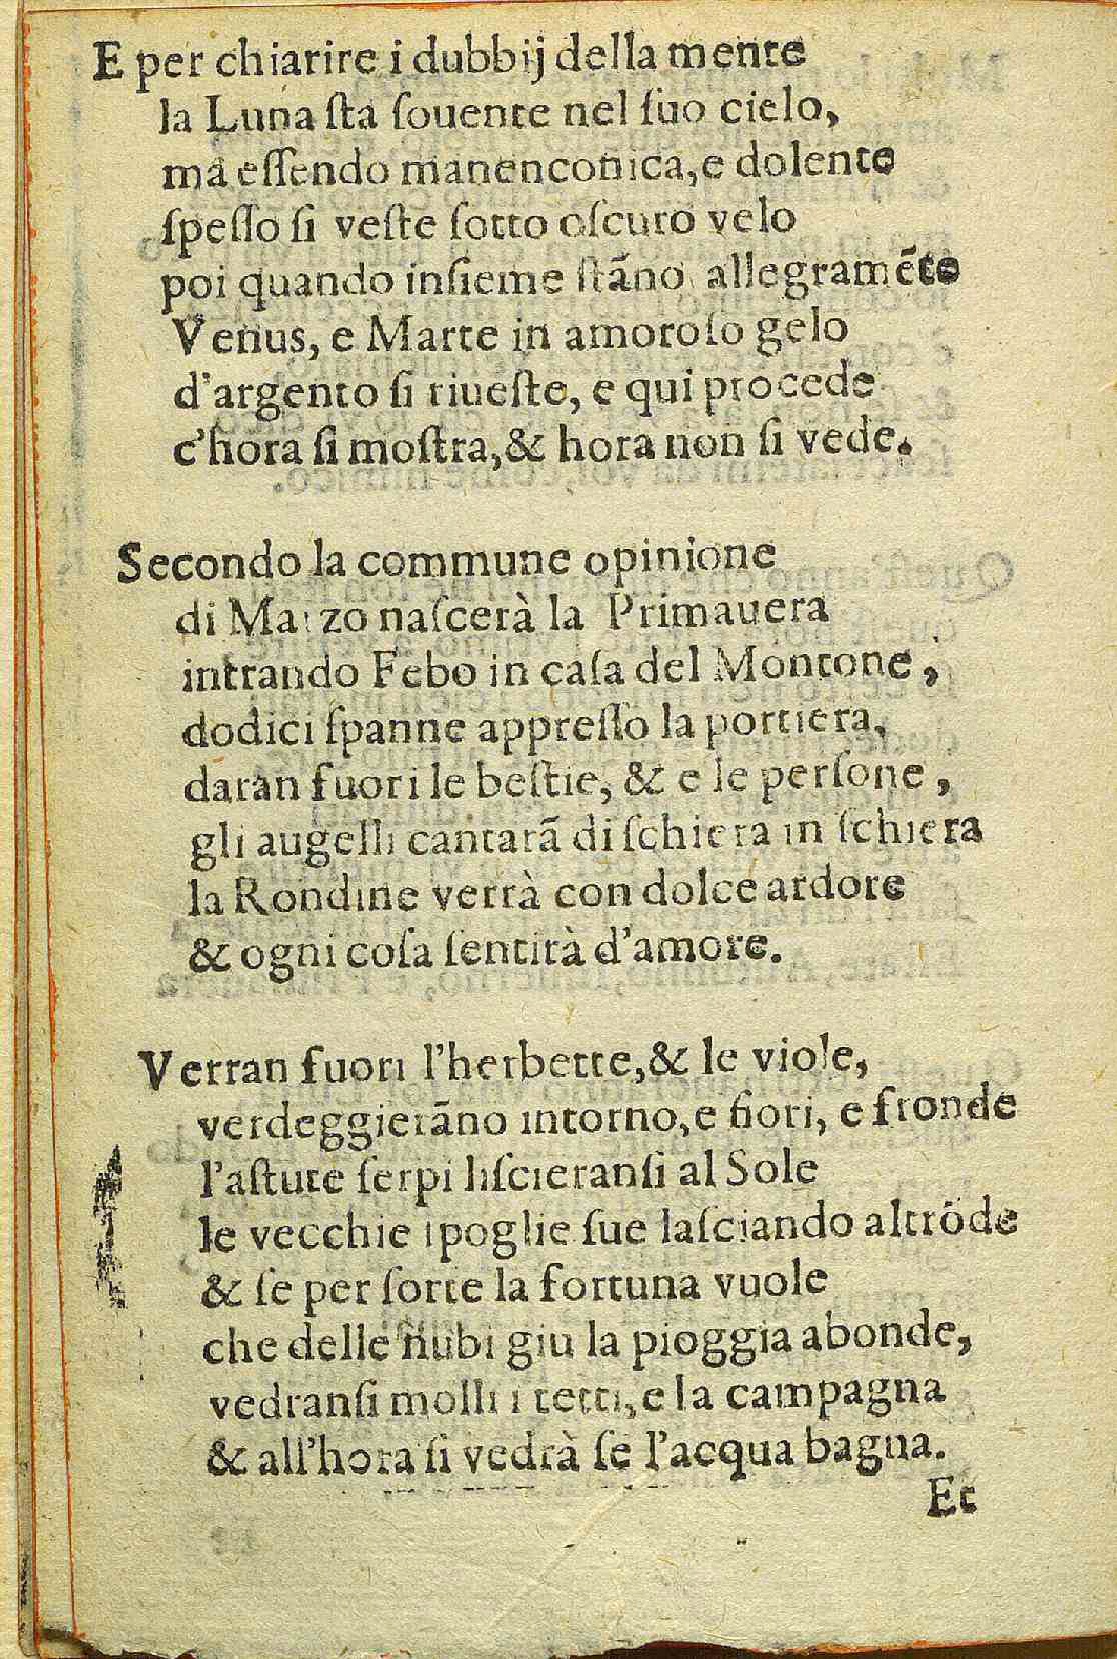 E per chiarire i dubbij della mente
la Luna ſta ſouente nel ſuo cielo,
ma eſſendo manenconica, e dolente
ſpeſſo ſi veſte ſotto oſcuro velo
poi quando inſieme ſtãno allegramẽte
Venus, e Marte in amoroſo gelo
d'argento ſi riueſte, e qui procede
c'hora ſi moſtra, & hora non ſi vede.
Secondo la commune opinione
di Marzo naſcerà la Primauera
intrando Febo in caſa del Montone,
dodici ſpanne appreſſo la portiera,
daran fuori le beſtie, & e le perſone,
gli augelli cantarã di ſchiera in ſchiera
la Rondine verrà con dolce ardore
& ogni coſa ſentirà d'amore.
Verran fuori l'herbette, & le viole,
verdeggierãno intorno, e fiori, e fronde
l'aſtute ſerpi liſcieranſi al Sole
le vecchie ſpoglie ſue laſciando altrõde
& ſe per ſorte la fortuna vuole
che delle nubi giu la pioggia abonde,
vedranſi molli i tetti, e la campagna
& all'hora ſi vedrà ſe l'acqua bagna.
Et